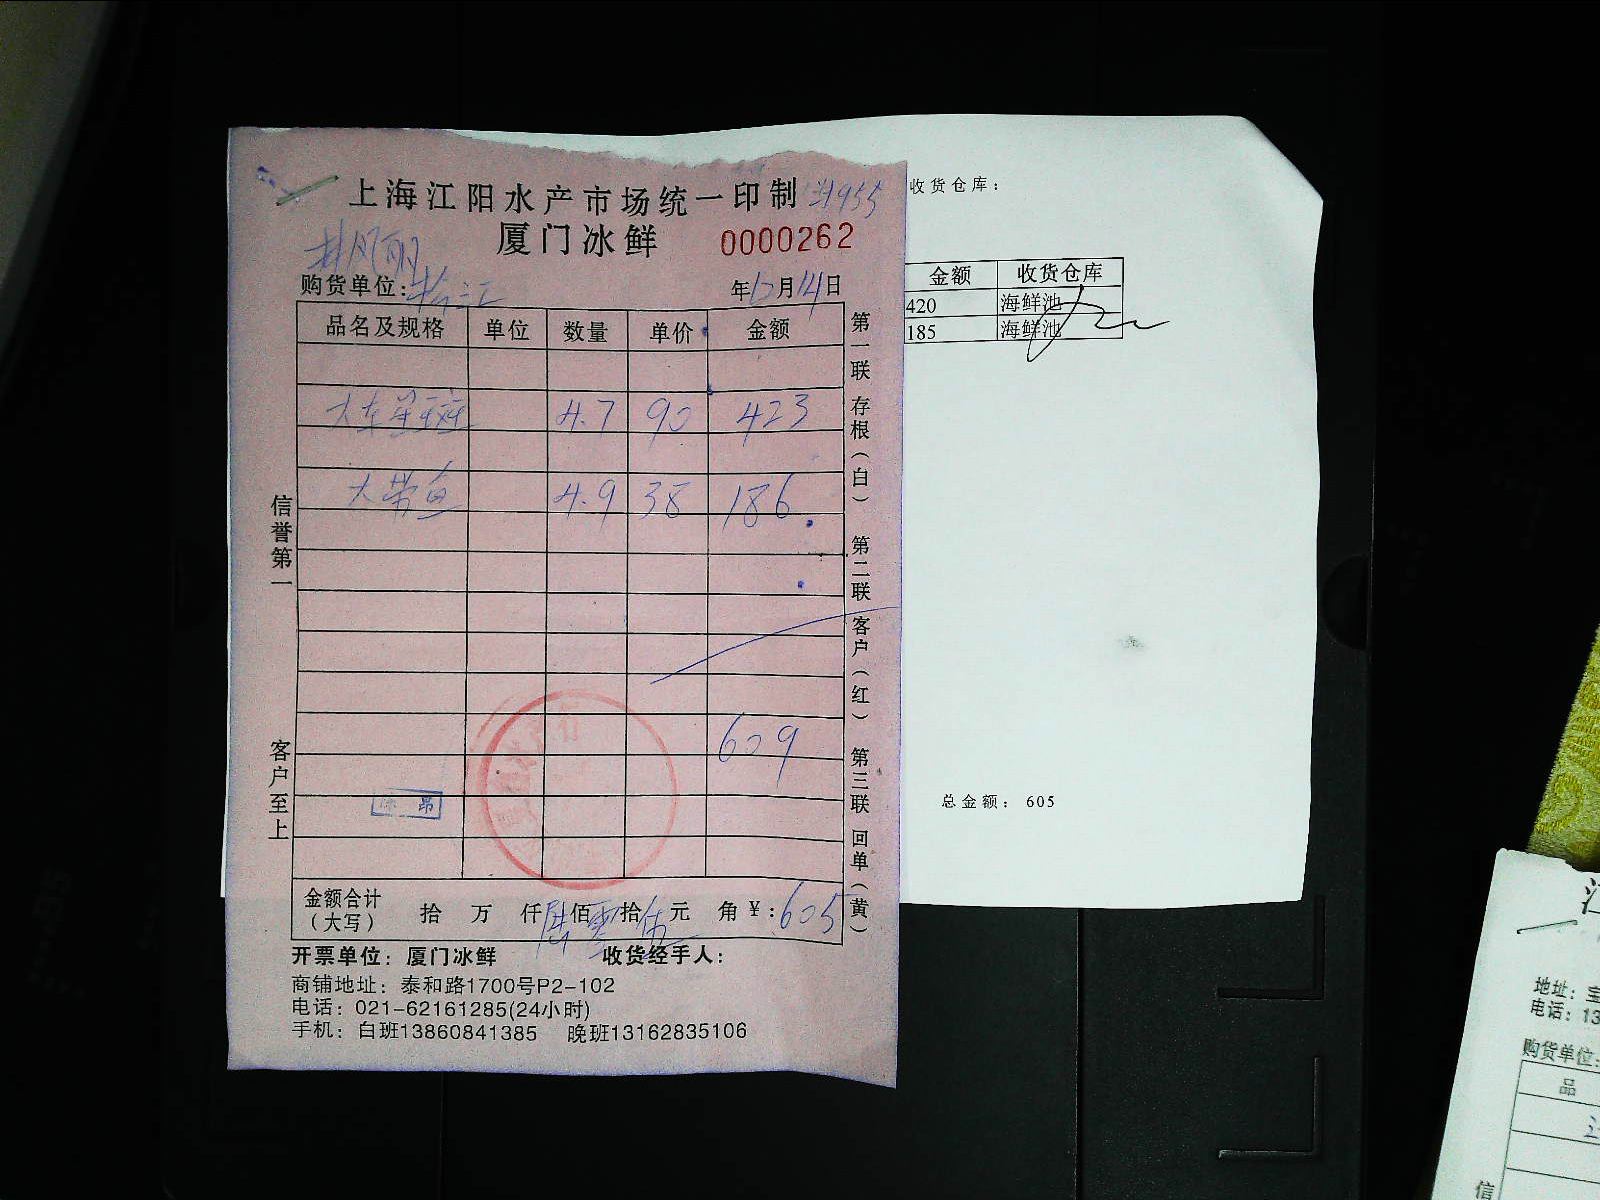 上海江阳水产市场统一印制
厦门冰鲜 0000262
购货单位: 年12月14日
品名及规格 单位 数量 单价 金额
大东星斑 4.7 90 423
大带鱼 4.9 38 186
609
金额合计(大写) 拾 万 仟陆佰零拾伍元 角 ¥:605
开票单位: 厦门冰鲜 收货经手人:
商铺地址: 泰和路1700号P2-102
电话: 021-62161285(24小时)
手机: 白班13860841385 晚班13162835106
信誉第一
客户至上
第一联 存根(白) 第二联 客户(红) 第三联 回单(黄)
收货仓库:
金额 收货仓库
420 海鲜池
185 海鲜池
总金额: 605
地址:
电话: 13
购货单位:
品
信